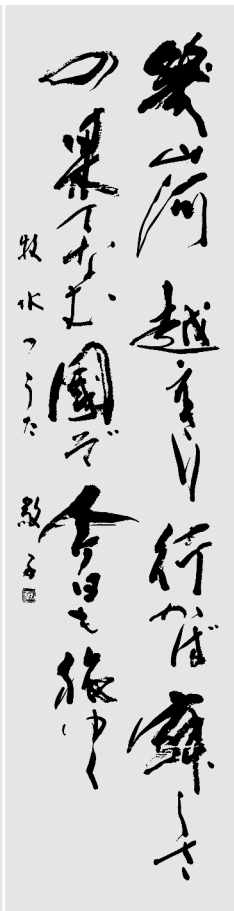 幾山河越えさり行かば寂しさ
の果てなむ國ぞ今日も旅ゆく
牧水のうた